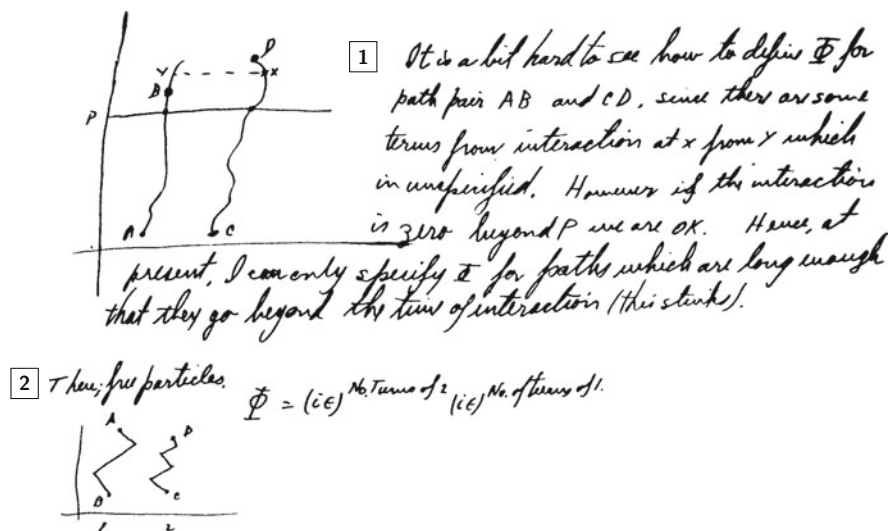 D
Y
X
B
P
A
C
1
It is a bit hard to see how to define Φ for
path pair AB and CD, since there are some
terms from interaction at x from y which
in unspecified. However if the interaction
is zero beyond P we are OK. Hence, at
present, I can only specify Φ for paths which are long enough
that they go beyond the time of interaction (this stinks).
2
Then, free particles.
Φ = (iε)^No. Turns of 2 (iε)^No. of turns of 1.
A
D
B
C
1 2